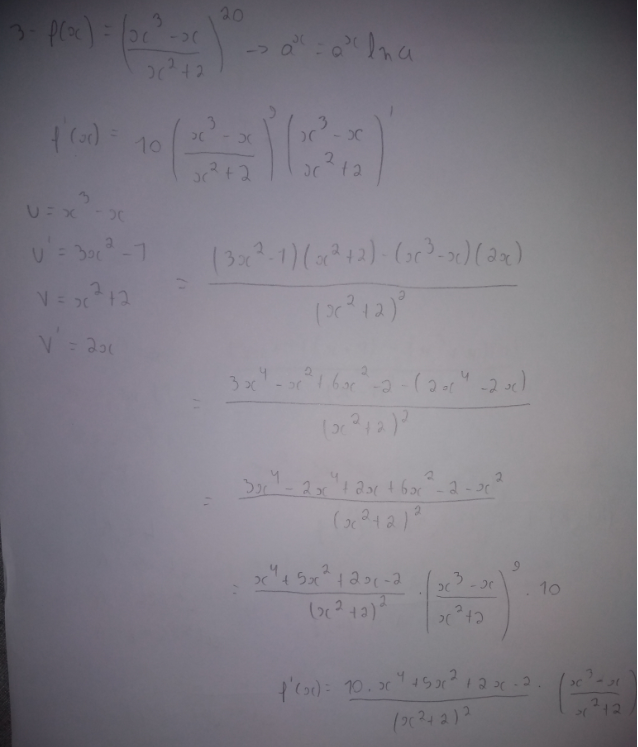 3- f(x) = (x³ - x / x² + 2)²⁰ → aˣ = aˣ ln a
f'(x) = 10 (x³ - x / x² + 2)⁹ (x³ - x / x² + 2)'
u = x³ - x
u' = 3x² - 1
v = x² + 2
v' = 2x
= (3x² - 1)(x² + 2) - (x³ - x)(2x) / (x² + 2)²
= 3x⁴ - x² + 6x² - 2 - (2x⁴ - 2x) / (x² + 2)²
= 3x⁴ - 2x⁴ + 2x + 6x² - 2 - x² / (x² + 2)²
= x⁴ + 5x² + 2x - 2 / (x² + 2)² · (x³ - x / x² + 2)⁹ · 10
f'(x) = 10 · x⁴ + 5x² + 2x - 2 / (x² + 2)² · (x³ - x / x² + 2)